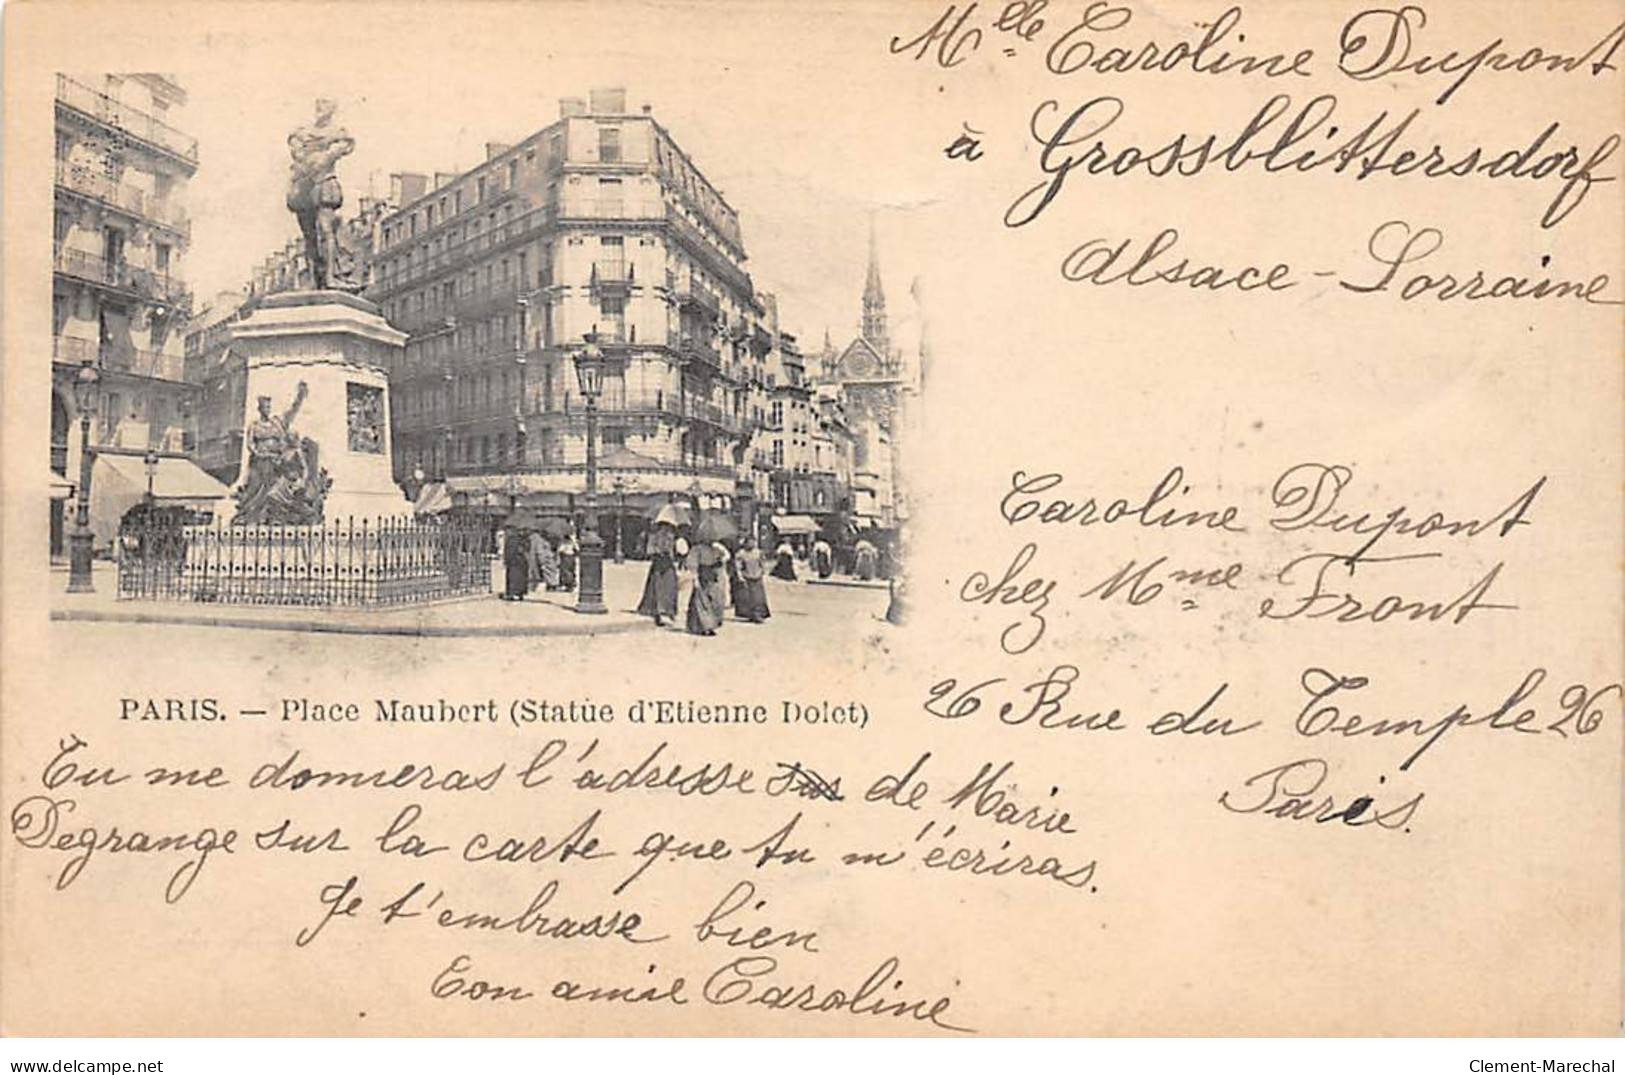 Mlle Caroline Dupont
à Grossblittersdorf
Alsace-Lorraine
Caroline Dupont
chez Mme Front
26 Rue du Temple 26
Paris.
PARIS. — Place Maubert (Statùe d'Etienne Dolet)
Tu me donneras l'adresse sur de Marie
Degrange sur la carte que tu m'écriras.
Je t'embrasse bien
Ton amie Caroline
www.delcampe.net
Clement-Marechal